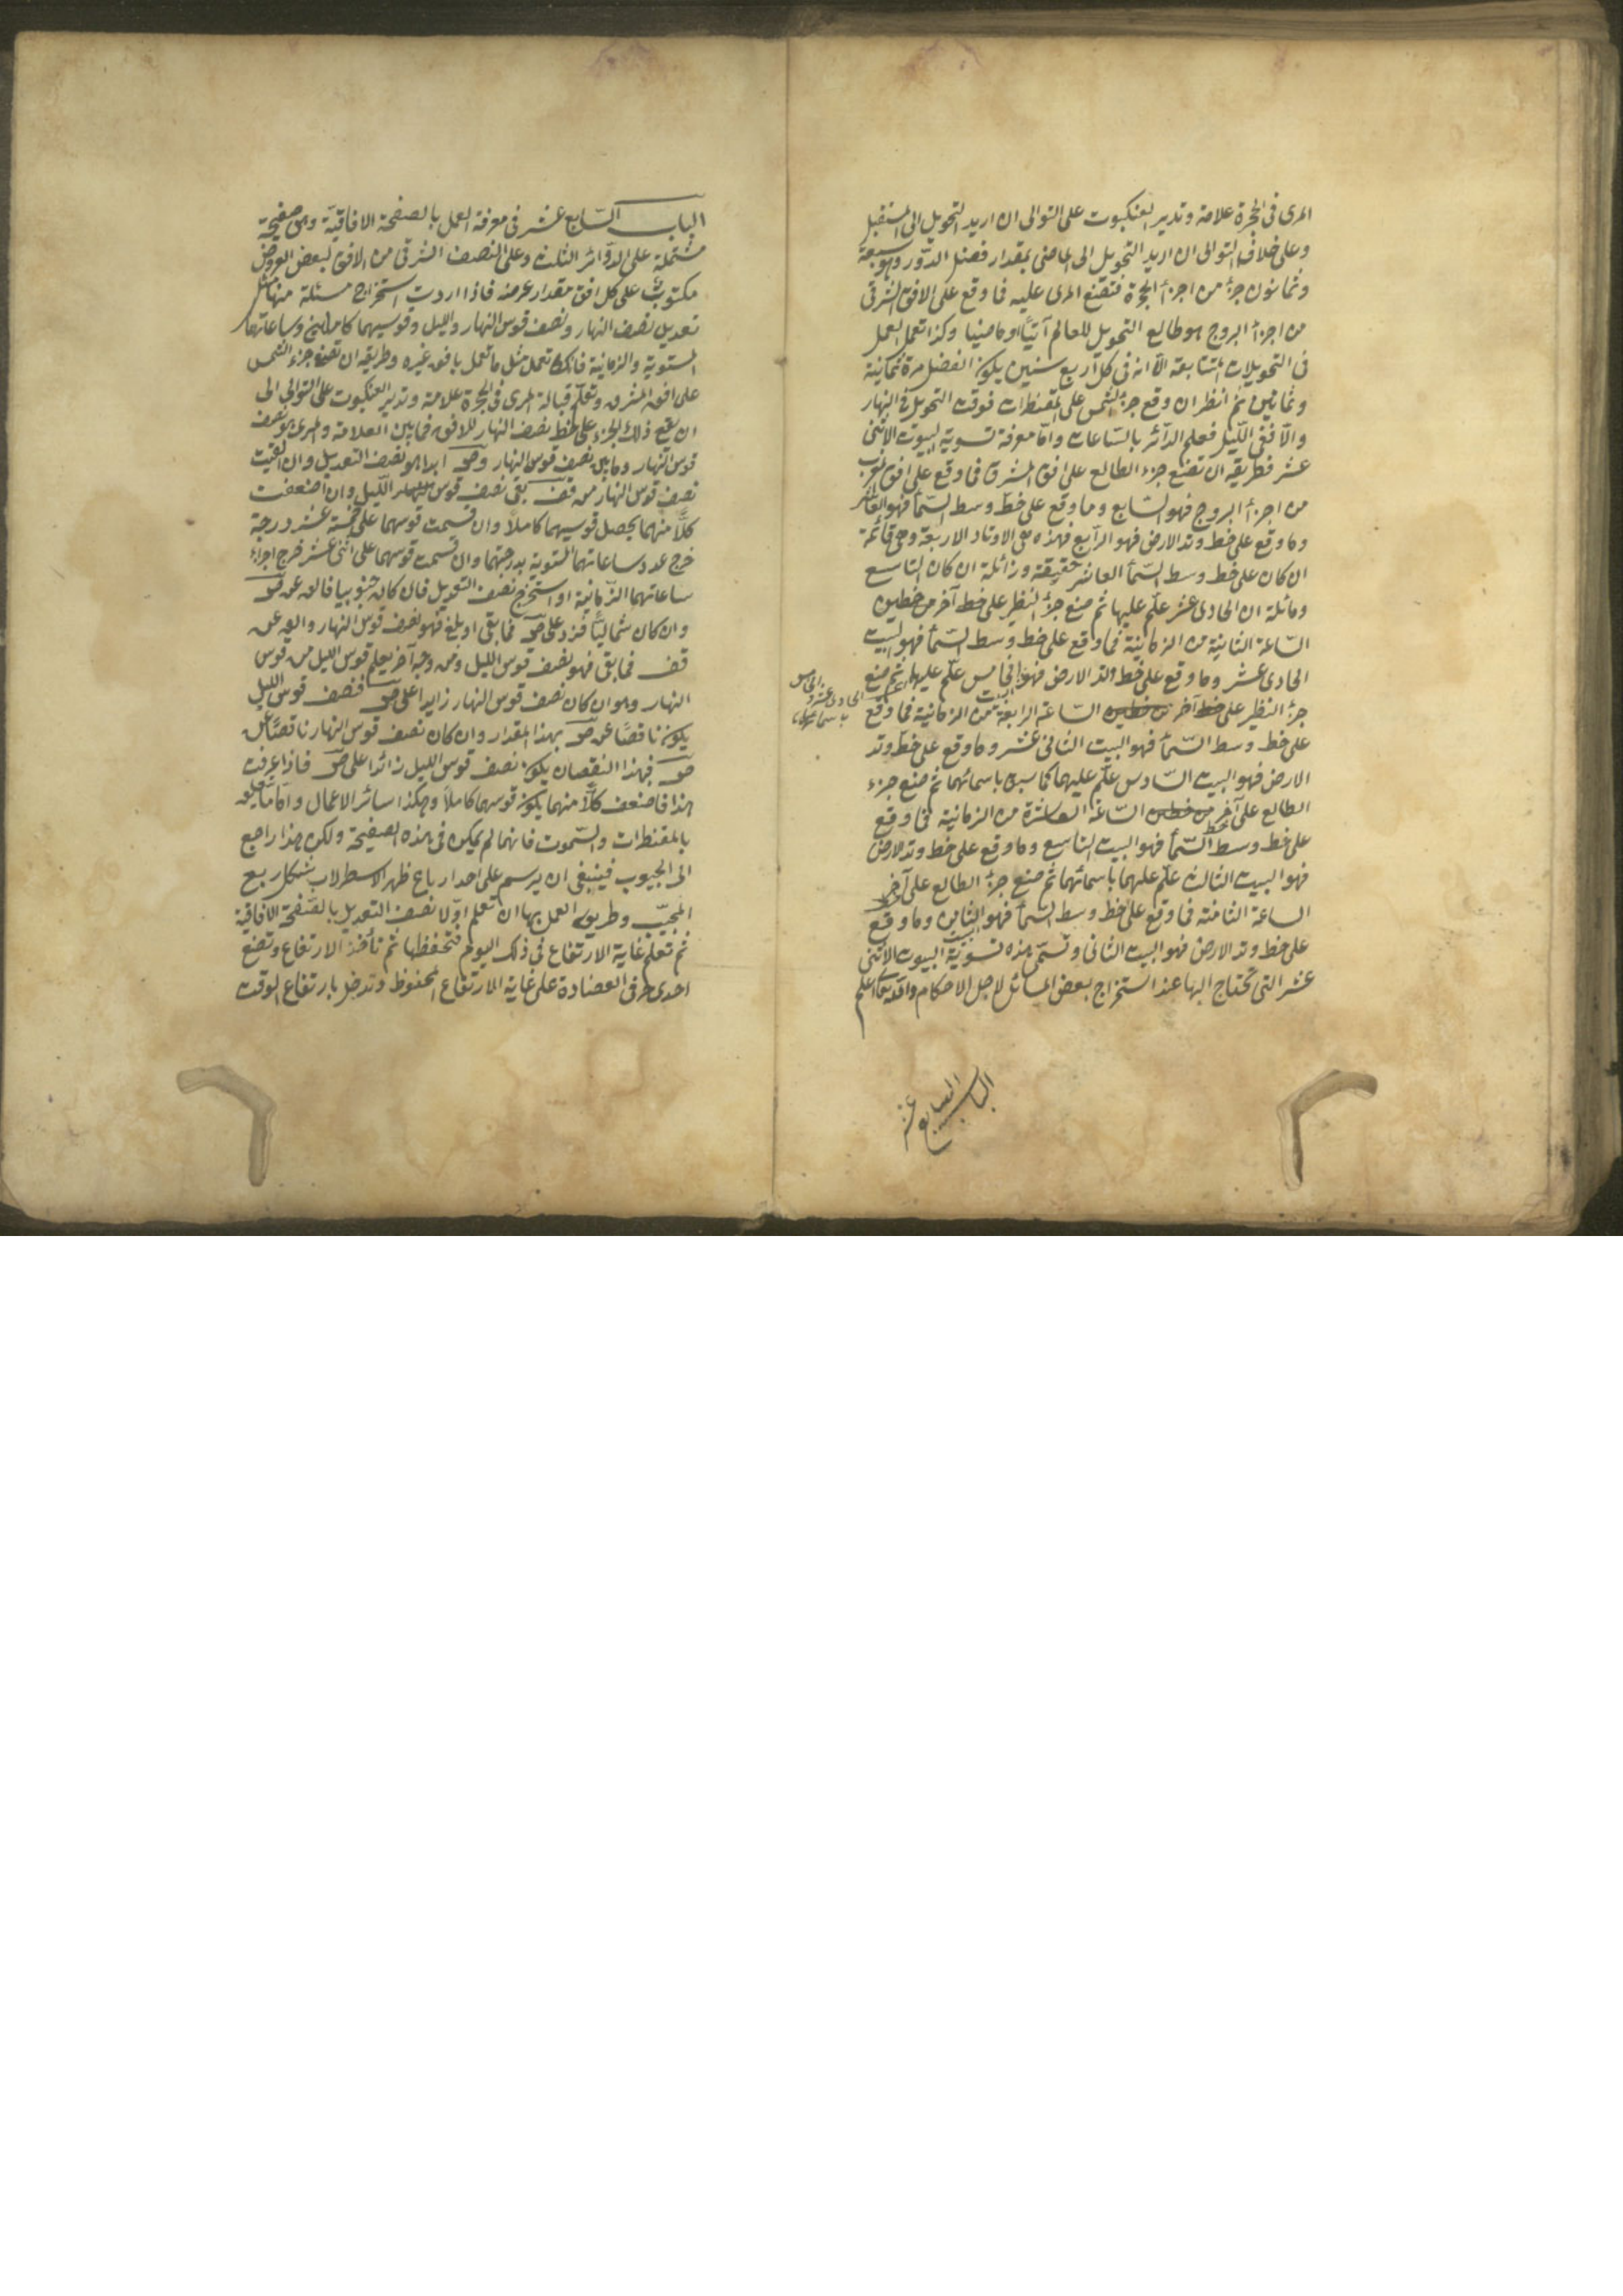 المرى فى الحجرة علامة وتدير العنكبوت على التوالى ان اريد التحويل الى المستقبل
وعلى خلاف التوالى ان اريد التحويل الى الماضى بمقدار فضل الدّور وهو سبعة
وثمانون جزءً من اجزاء الحجرة فتضع المرى عليه فما وقع على الافق الشرقى
من اجزاء البروج هو طالع التحويل للعالم آتيًا او ماضيا وكذا تعمل العمل
فى التحويلات المتتابعة الّا انه فى كل اربع سنين يكون الفضل مرة ثمانية
وثمانين ثم انظر ان وقع جزء الشمس على المقنطرات فوقت التحويل فى النهار
والّا ففى اللّيل فعلم الدّائر بالسّاعات وامّا معرفة تسوية البيوت الاثنى
عشر فطريقه ان تضع جزء الطالع على افق المشرق فما وقع على افق المغرب
من اجزاء البروج فهو السّابع وما وقع على خط وسط السّماء فهو العاشر
وما وقع على خط وتد الارض فهو الرّابع فهذه هى الاوتاد الاربعة وهى قائمة
ان كان على خط وسط السّماء العاشر حقيقة وزائلة ان كان التاسع
ومائلة ان الحادى عشر علّم عليها ثم ضع جزء النظير على خط آخر من خطين
السّاعة الثانية من الزمانية فما وقع على خط وسط السّماء فهو البيت
الحادى عشر وما وقع على خط وتد الارض فهو الخامس علّم عليها ثم ضع
جزء النظير على خط آخر من خطين السّاعة الرابعة من الزمانية فما وقع
على خط وسط السّماء فهو البيت الثانى عشر وما وقع على خط وتد
الارض فهو البيت السّادس علّم عليهما كما سبق باسمائهما ثم ضع جزء
الطالع على آخر من خطين السّاعة العاشرة من الزمانية فما وقع
على خط وسط السّماء فهو البيت التاسع وما وقع على خط وتد الارض
فهو البيت الثالث علّم عليهما باسمائهما ثم ضع جزء الطالع على آخر خط
الساعة الثامنة فما وقع على خط وسط السّماء فهو البيت الثامن وما وقع
على خط وتد الارض فهو البيت الثانى وتسمّى هذه تسوية البيوت الاثنى
عشر التى تحتاج اليها عند استخراج بعض المسائل لاجل الاحكام والله تعالى اعلم
الباب السابع عشر
الباب السّابع عشر فى معرفة العمل بالصفحة الافاقيّة وهى صفيحة
مشتملة على الدّوائر الثلث وعلى النصف الشرقى من الافق لبعض العروض
مكتوبٌ على كل افق مقدار عرضه فاذا اردت استخراج مسئلة منها مثل
تعديل نصف النهار ونصف قوس النهار والليل وقوسيهما كاملين وساعاتهما
المستوية والزمانية فانك تعمل مثل ما تعمل بافق غيره وطريقه ان تضع جزء الشمس
على افق المشرق وتعلّم قبالة المرى فى الحجرة علامة وتدير العنكبوت على التوالى الى
ان يقع ذلك الجزء على خط نصف النهار للافق فما بين العلامة والمرى هو نصف
قوس النهار وما بين نصف قوس النهار وص ابدا هو نصف التعديل وان القيت
نصف قوس النهار من قف بقى نصف قوس الليل وان اضعفت
كلًّا منهما يحصل قوسيهما كاملا وان قسمت قوسهما على خمسة عشر درجة
خرج عدد ساعاتهما المستوية بدرجتهما وان قسمت قوسهما على اثنى عشر خرج اجزاء
ساعاتهما الزّمانية او استخرج نصف التعديل فان كان جنوبيا فالقه من ص
وان كان شماليًّا فزد على ص فما بقى او بلغ فهو نصف قوس النهار والقه من
قف فما بقى فهو نصف قوس الليل ومن وجه آخر يعلم قوس الليل من قوس
النهار وهو ان كان نصف قوس النهار زايدا على ص فنصف قوس الليل
يكون ناقصًا عن ص بهذا المقدار وان كان نصف قوس النهار ناقصًا عن
ص فبهذا النقصان يكون نصف قوس الليل زائدا على ص فاذا عرفت
هذا فاضعف كلًّا منهما يكون قوسهما كاملًا وهكذا سائر الاعمال وامّا ما يتعلق
بالمقنطرات والسّموت فانهما لم يمكن فى هذه الصفيحة ولكن هذا راجع
الى الجيوب فينبغى ان يرسم على احد ارباع ظهر الاسطرلاب شكل ربع
المجيّب وطريق العمل بها ان تعلم اوّلا نصف التعديل بالصفحة الافاقية
ثم تعلم غاية الارتفاع فى ذلك اليوم فتحفظها ثم تأخذ الارتفاع وتضع
احدى حرفى العضادة على غاية الارتفاع المحفوظ وتدخل بارتفاع الوقت